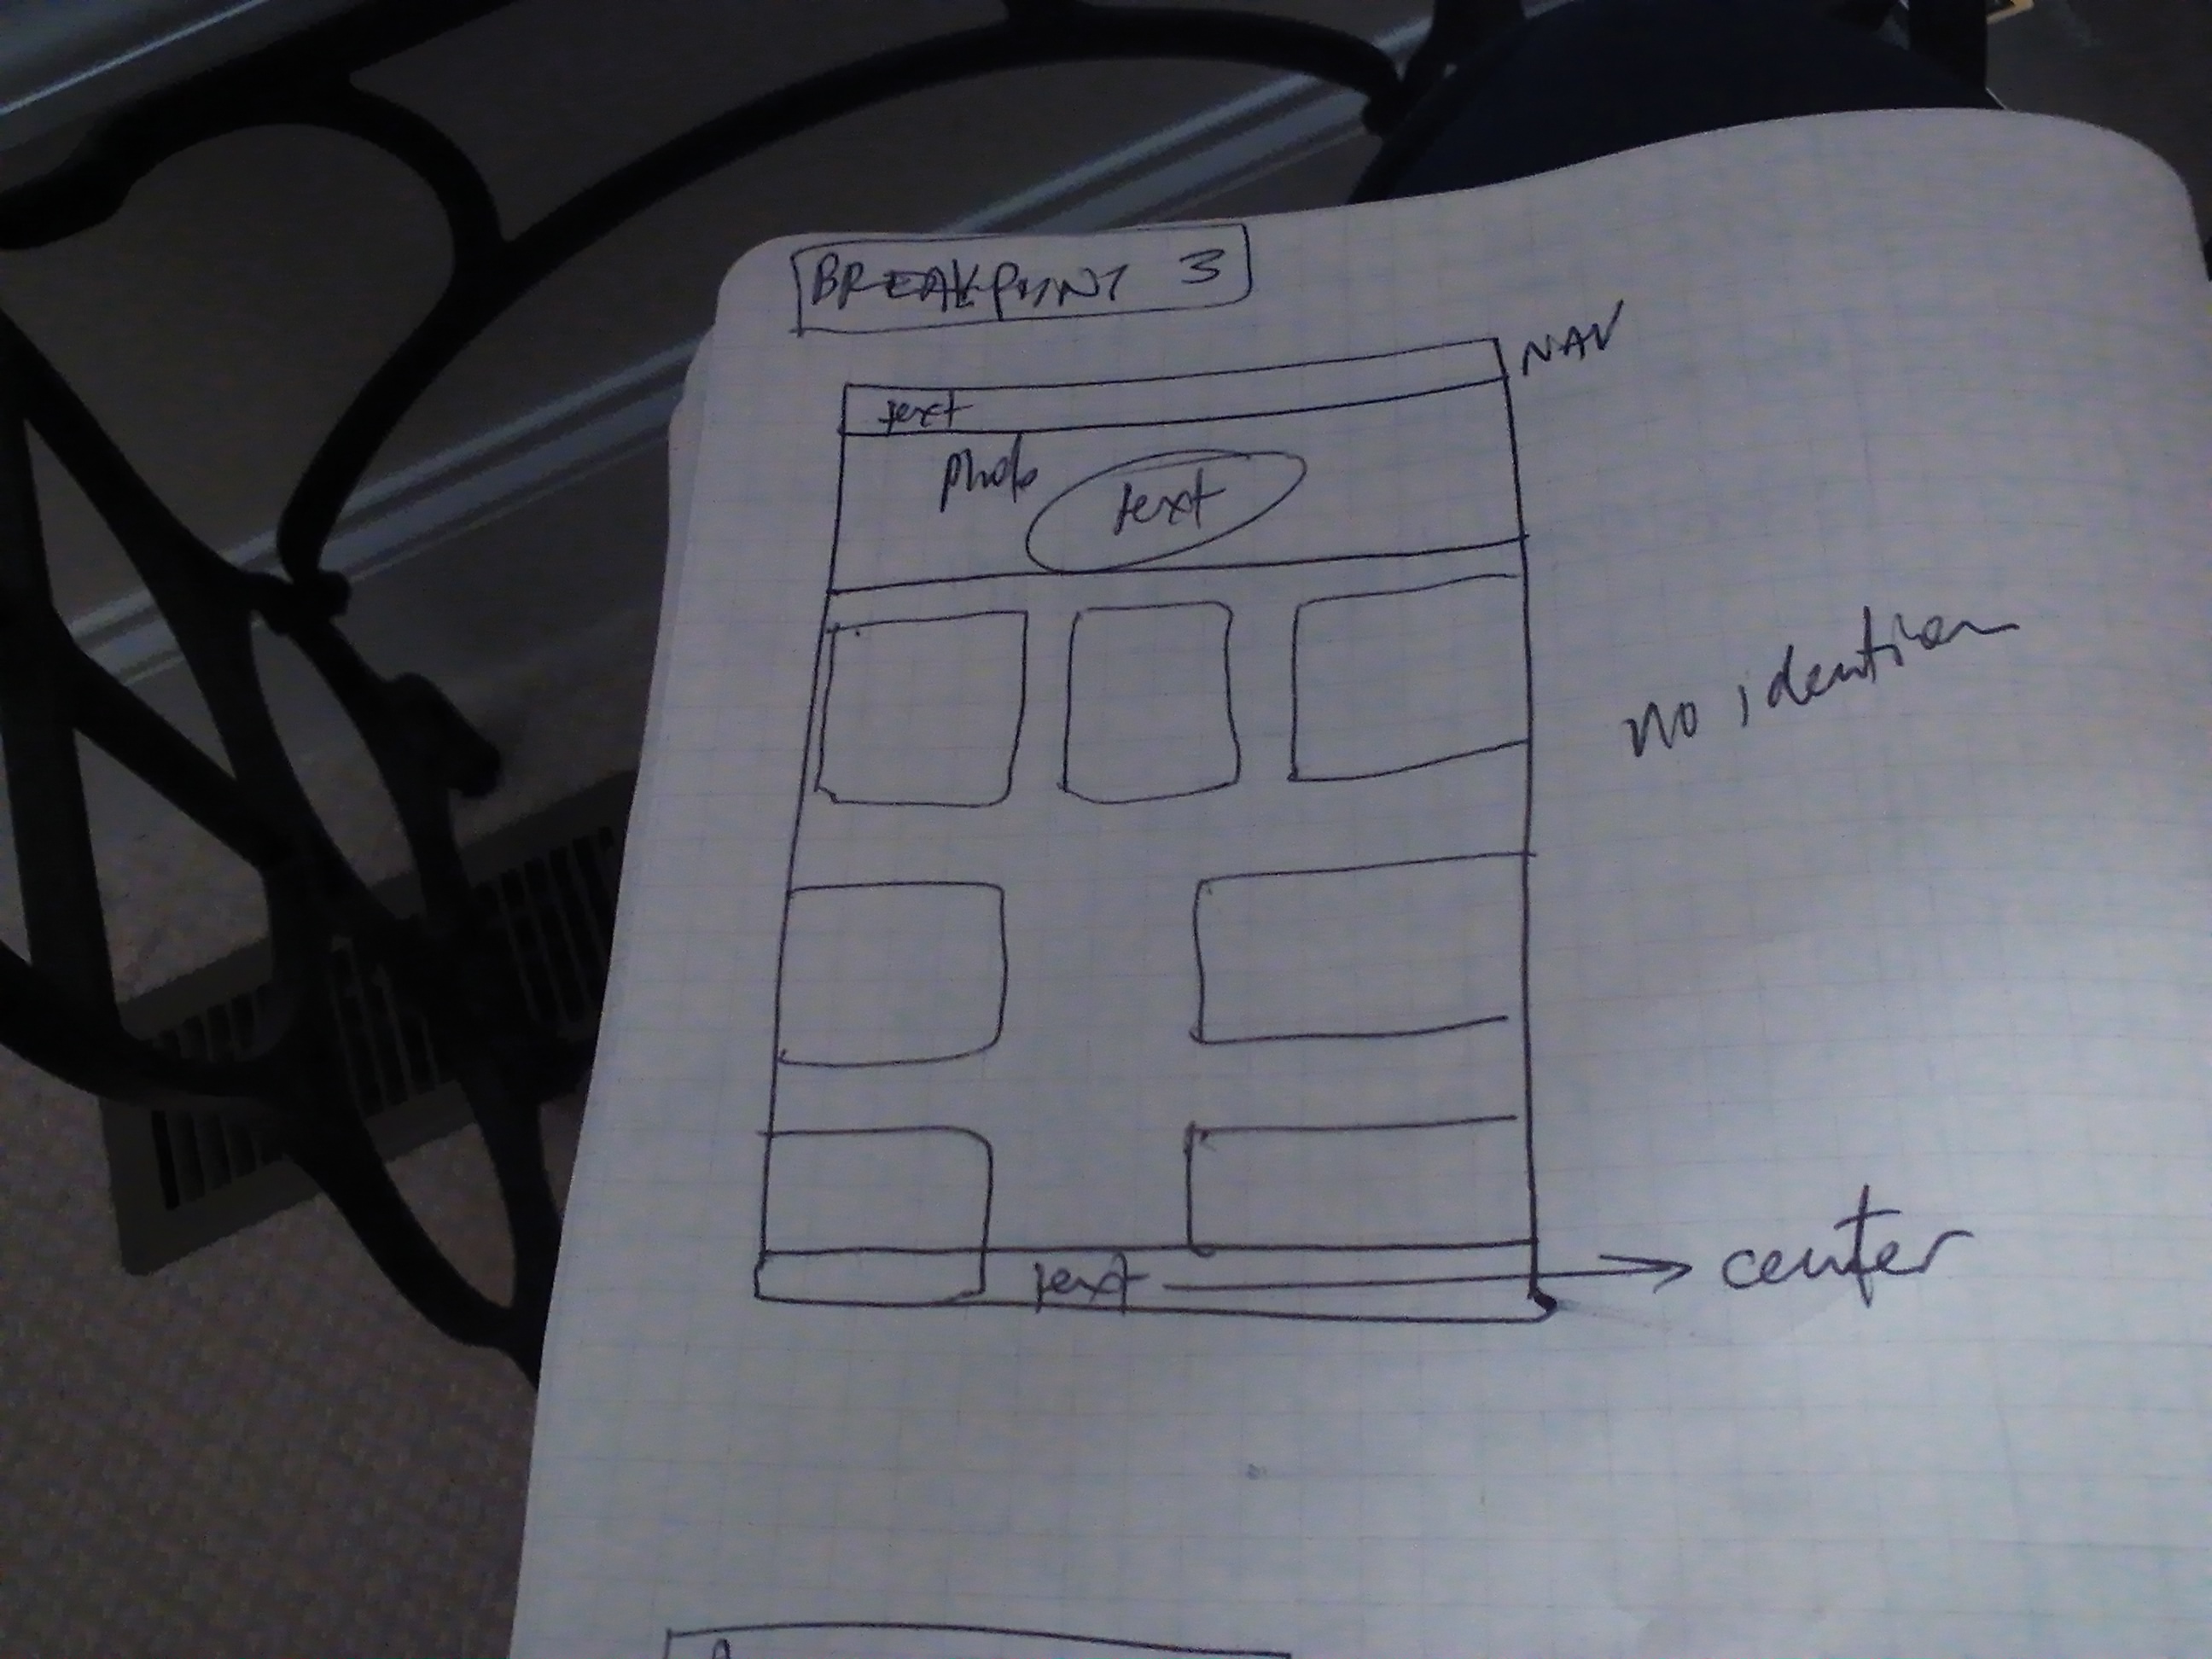 BREAKPOINT 3
NAV
text
photo
text
no idention
text → center